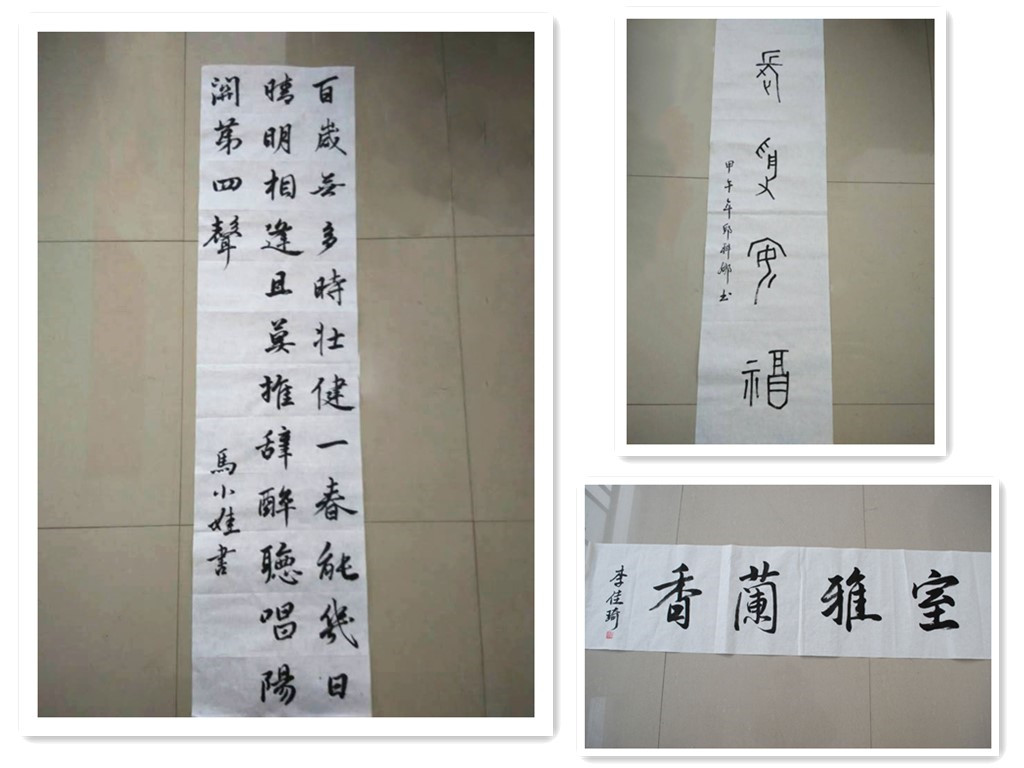 百歲無多時壯健一春能幾日
晴明相逢且莫推辭醉聽唱陽
關第四聲
馬小娃書
長 安福
甲午年
室雅蘭香
李佳琦